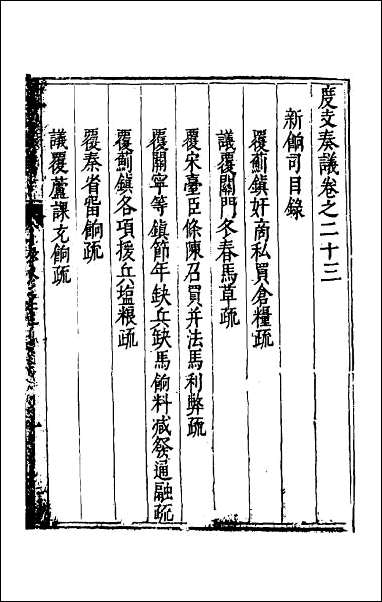 度支奏議卷之二十三
新餉司目錄
覆薊鎮奸商私買倉糧疏
議覆關門冬春馬草疏
覆宋臺臣條陳召買并法馬利弊疏
覆關寧等鎮節年缺兵缺馬餉料減發通融疏
覆薊鎮各項援兵塩粮疏
覆秦省留餉疏
議覆蘆課充餉疏